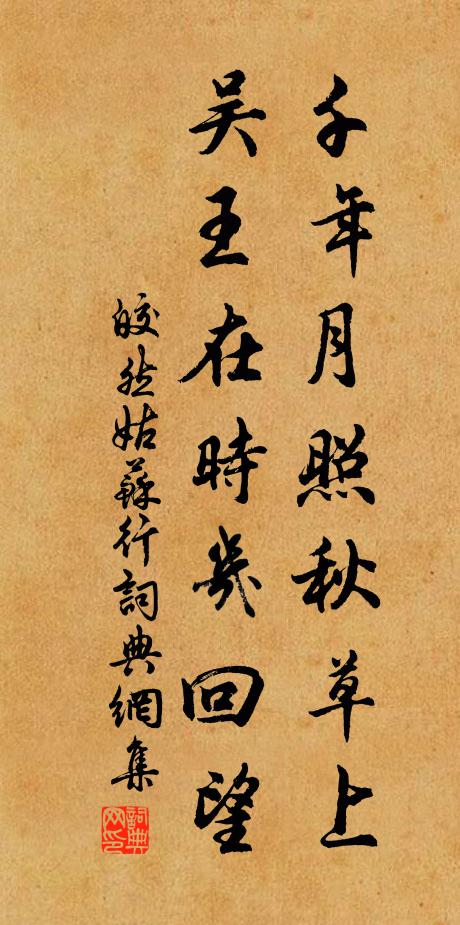 千年月照秋草上
吳王在時幾回望
皎然姑蘇行詞典網集
詞典網印